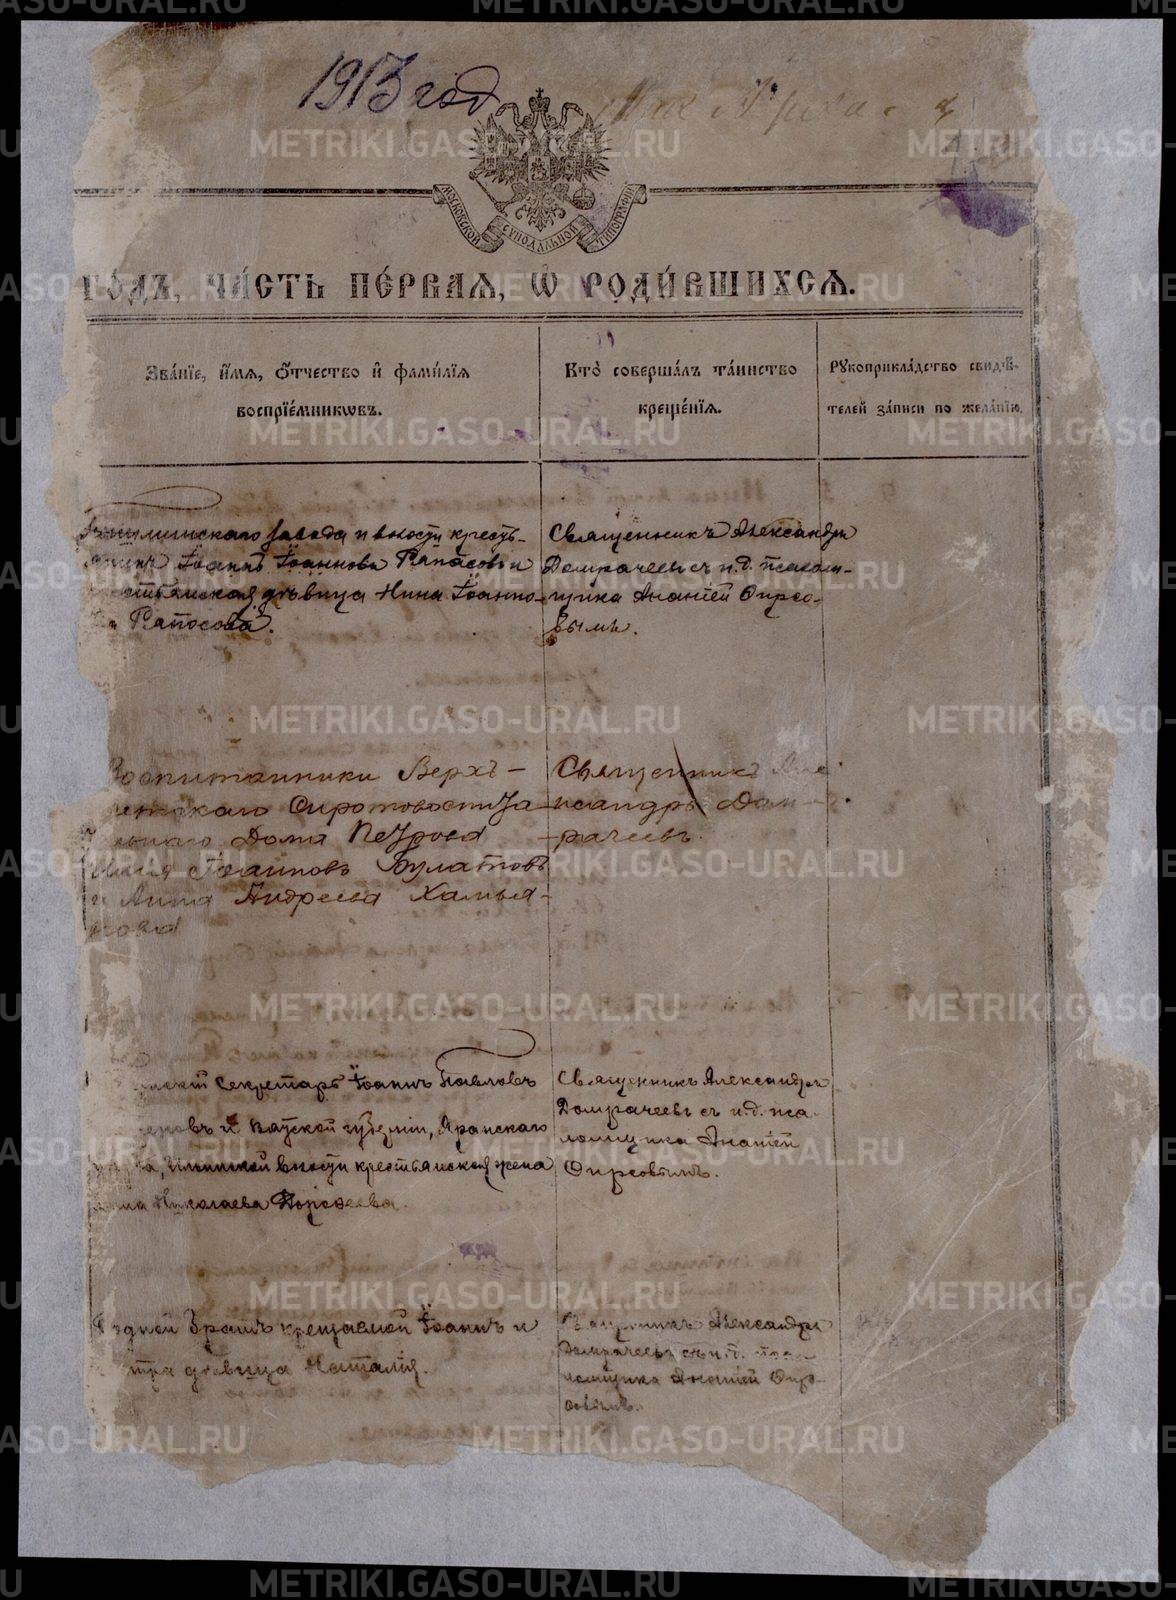 1913 год
МОСКОВСКОЙ СУНОДАЛЬНОЙ ТИПОГРАФІИ
ГО́ДЪ, ЧА́СТЬ ПЕ́РВАѦ, Ѡ РОДИ́ВШИХСѦ.
Зва́нїе, и́мѧ, ѻ́тчество и҆ фами́лїѧ
воспрїе́мникѡвъ.
Кто̀ соверша́лъ та́инство
креще́нїѧ.
Рꙋкоприкла́дство свидѣ́-
телей за́писи по жела́нїю.
завода и волости кресть-
Іоаннъ Іоанновъ Рапосовъ и
дѣвица Нина Іоанно-
Рапосова.
Священникъ Александръ
Домрачевъ съ и.д. псалом-
щика Ананіей Фирсо-
вымъ.
Воспитанники Верхъ-
Сиропитатель-
Дома Петрова
Іоанновъ Булатовъ
и Анна Андреева Хамья-
нова
Священникъ Але-
ксандръ Дом-
рачевъ.
Секретарь Іоаннъ Павловъ
и Вятской губерніи, Яранскаго
волости крестьянская жена
Николаева Дорофеева.
Священникъ Александръ
Домрачевъ съ и.д. пса-
ломщика Ананіей
Фирсовымъ.
Родной братъ крещаемой Іоаннъ и
дѣвица Наталія.
Священникъ Александръ
Домрачевъ съ и.д. псал-
ломщика Ананіей Фир-
совымъ.
METRIKI.GASO-URAL.RU